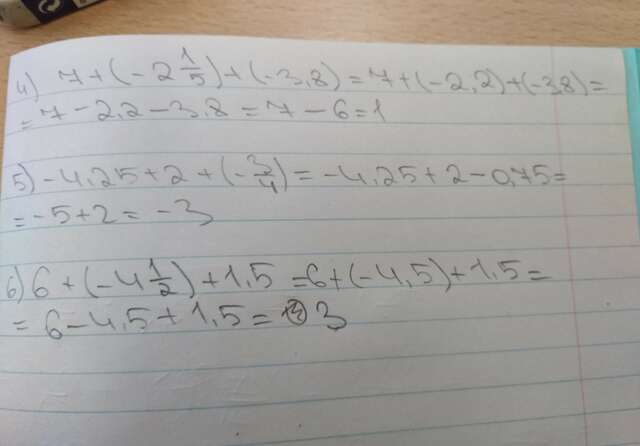 4) 7 + (-2 1/5) + (-3,8) = 7 + (-2,2) + (-3,8) =
= 7 - 2,2 - 3,8 = 7 - 6 = 1
5) -4,25 + 2 + (-3/4) = -4,25 + 2 - 0,75 =
= -5 + 2 = -3
6) 6 + (-4 1/2) + 1,5 = 6 + (-4,5) + 1,5 =
= 6 - 4,5 + 1,5 = 3